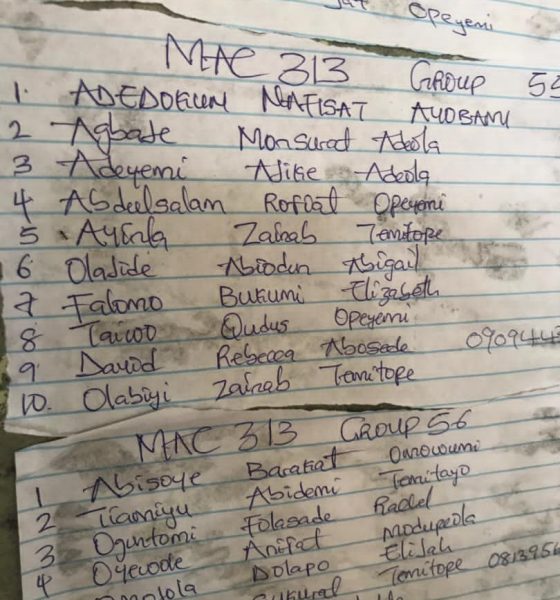 Opeyemi
MAC 313 GROUP 55
1. ADEDOKUN NAFISAT AYOBAMI
2 Agbaje Monsurat Adeola
3 Adeyemi Ajike Adeola
4 Abdulsalam Rofiat Opeyemi
5 Ayinla Zainab Temitope
6 Oladide Abiodun Abigail
7 Falomo Bukumi Elizabeth
8 Taiwo Qudus Opeyemi
9 David Rebecca Abosede 090944
10. Olabiyi Zainab Temitope
MAC 313 GROUP 56
1 Abisoye Barakat Omowumi
2 Tiamiyu Abidemi Temitayo
3 Oguntomi Folasade Rachel
4 Oyewode Anifat Modupeola
Dolapo Elijah
Temitope 081395